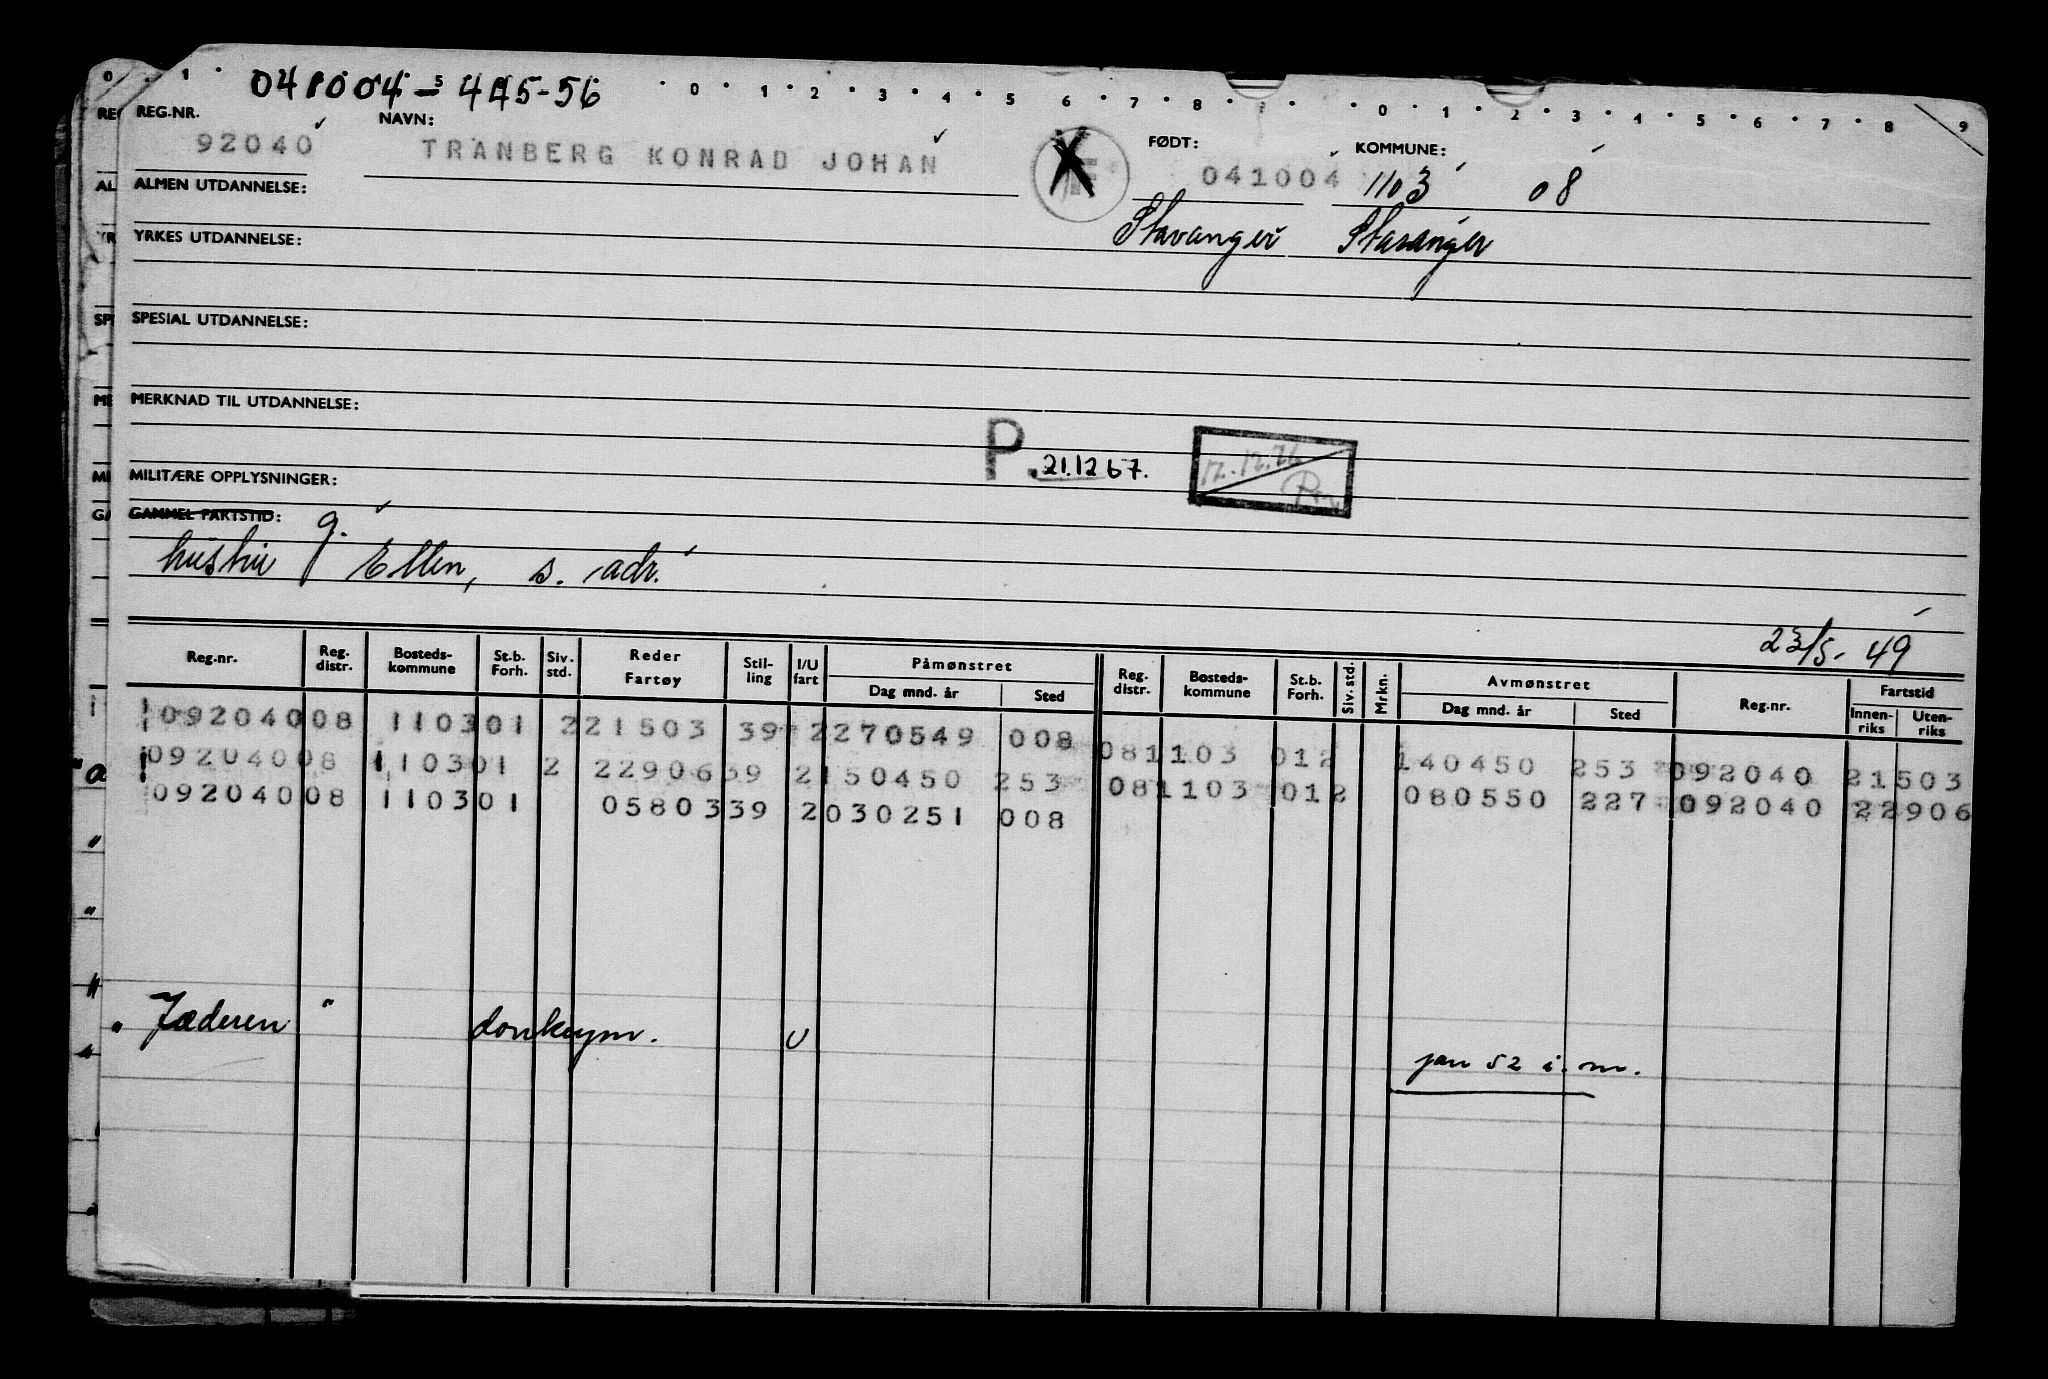 0 . 1 . 5 . 0 . 1 . 2 . 3 . 4 . 5 . 6 . 7 . 8 . 0 . 1 . 2 . 3 . 4 . 5 . 6 . 7 . 8 9
041004 - 445-56
REG REG.NR. NAVN: FØDT: KOMMUNE:
92040 TRANBERG KONRAD JOHAN 041004 1103 08
AL ALMEN UTDANNELSE:
Stavanger Stavanger
YR YRKES UTDANNELSE:
SPE SPESIAL UTDANNELSE:
ME MERKNAD TIL UTDANNELSE:
P. 21.12 67. 12.12.76
MI MILITÆRE OPPLYSNINGER:
GA GAMMEL FARTSTID:
hustru g. Ellen, s. adr.
23/5-49
Reg.nr. Reg. distr. Bosteds-kommune St.b. Forh. Siv. std. Reder Fartøy Stil-ling I/U fart Påmønstret Dag mnd. år Sted Reg. distr. Bosteds-kommune St.b. Forh. Siv. std. Mrkn. Avmønstret Dag mnd. år Sted Reg.nr. Fartstid Innen-riks Uten-riks
1 092040 08 1103 01 2 21503 39 2 270549 008 08 1103 01 2 140450 253 092040 21503
1 092040 08 1103 01 2 22906 39 2 150450 253 08 1103 01 2 080550 227 092040 22906
092040 08 1103 01 05803 39 2 030251 008
" Jæderen " donkeym. U
jan 52 i. m.